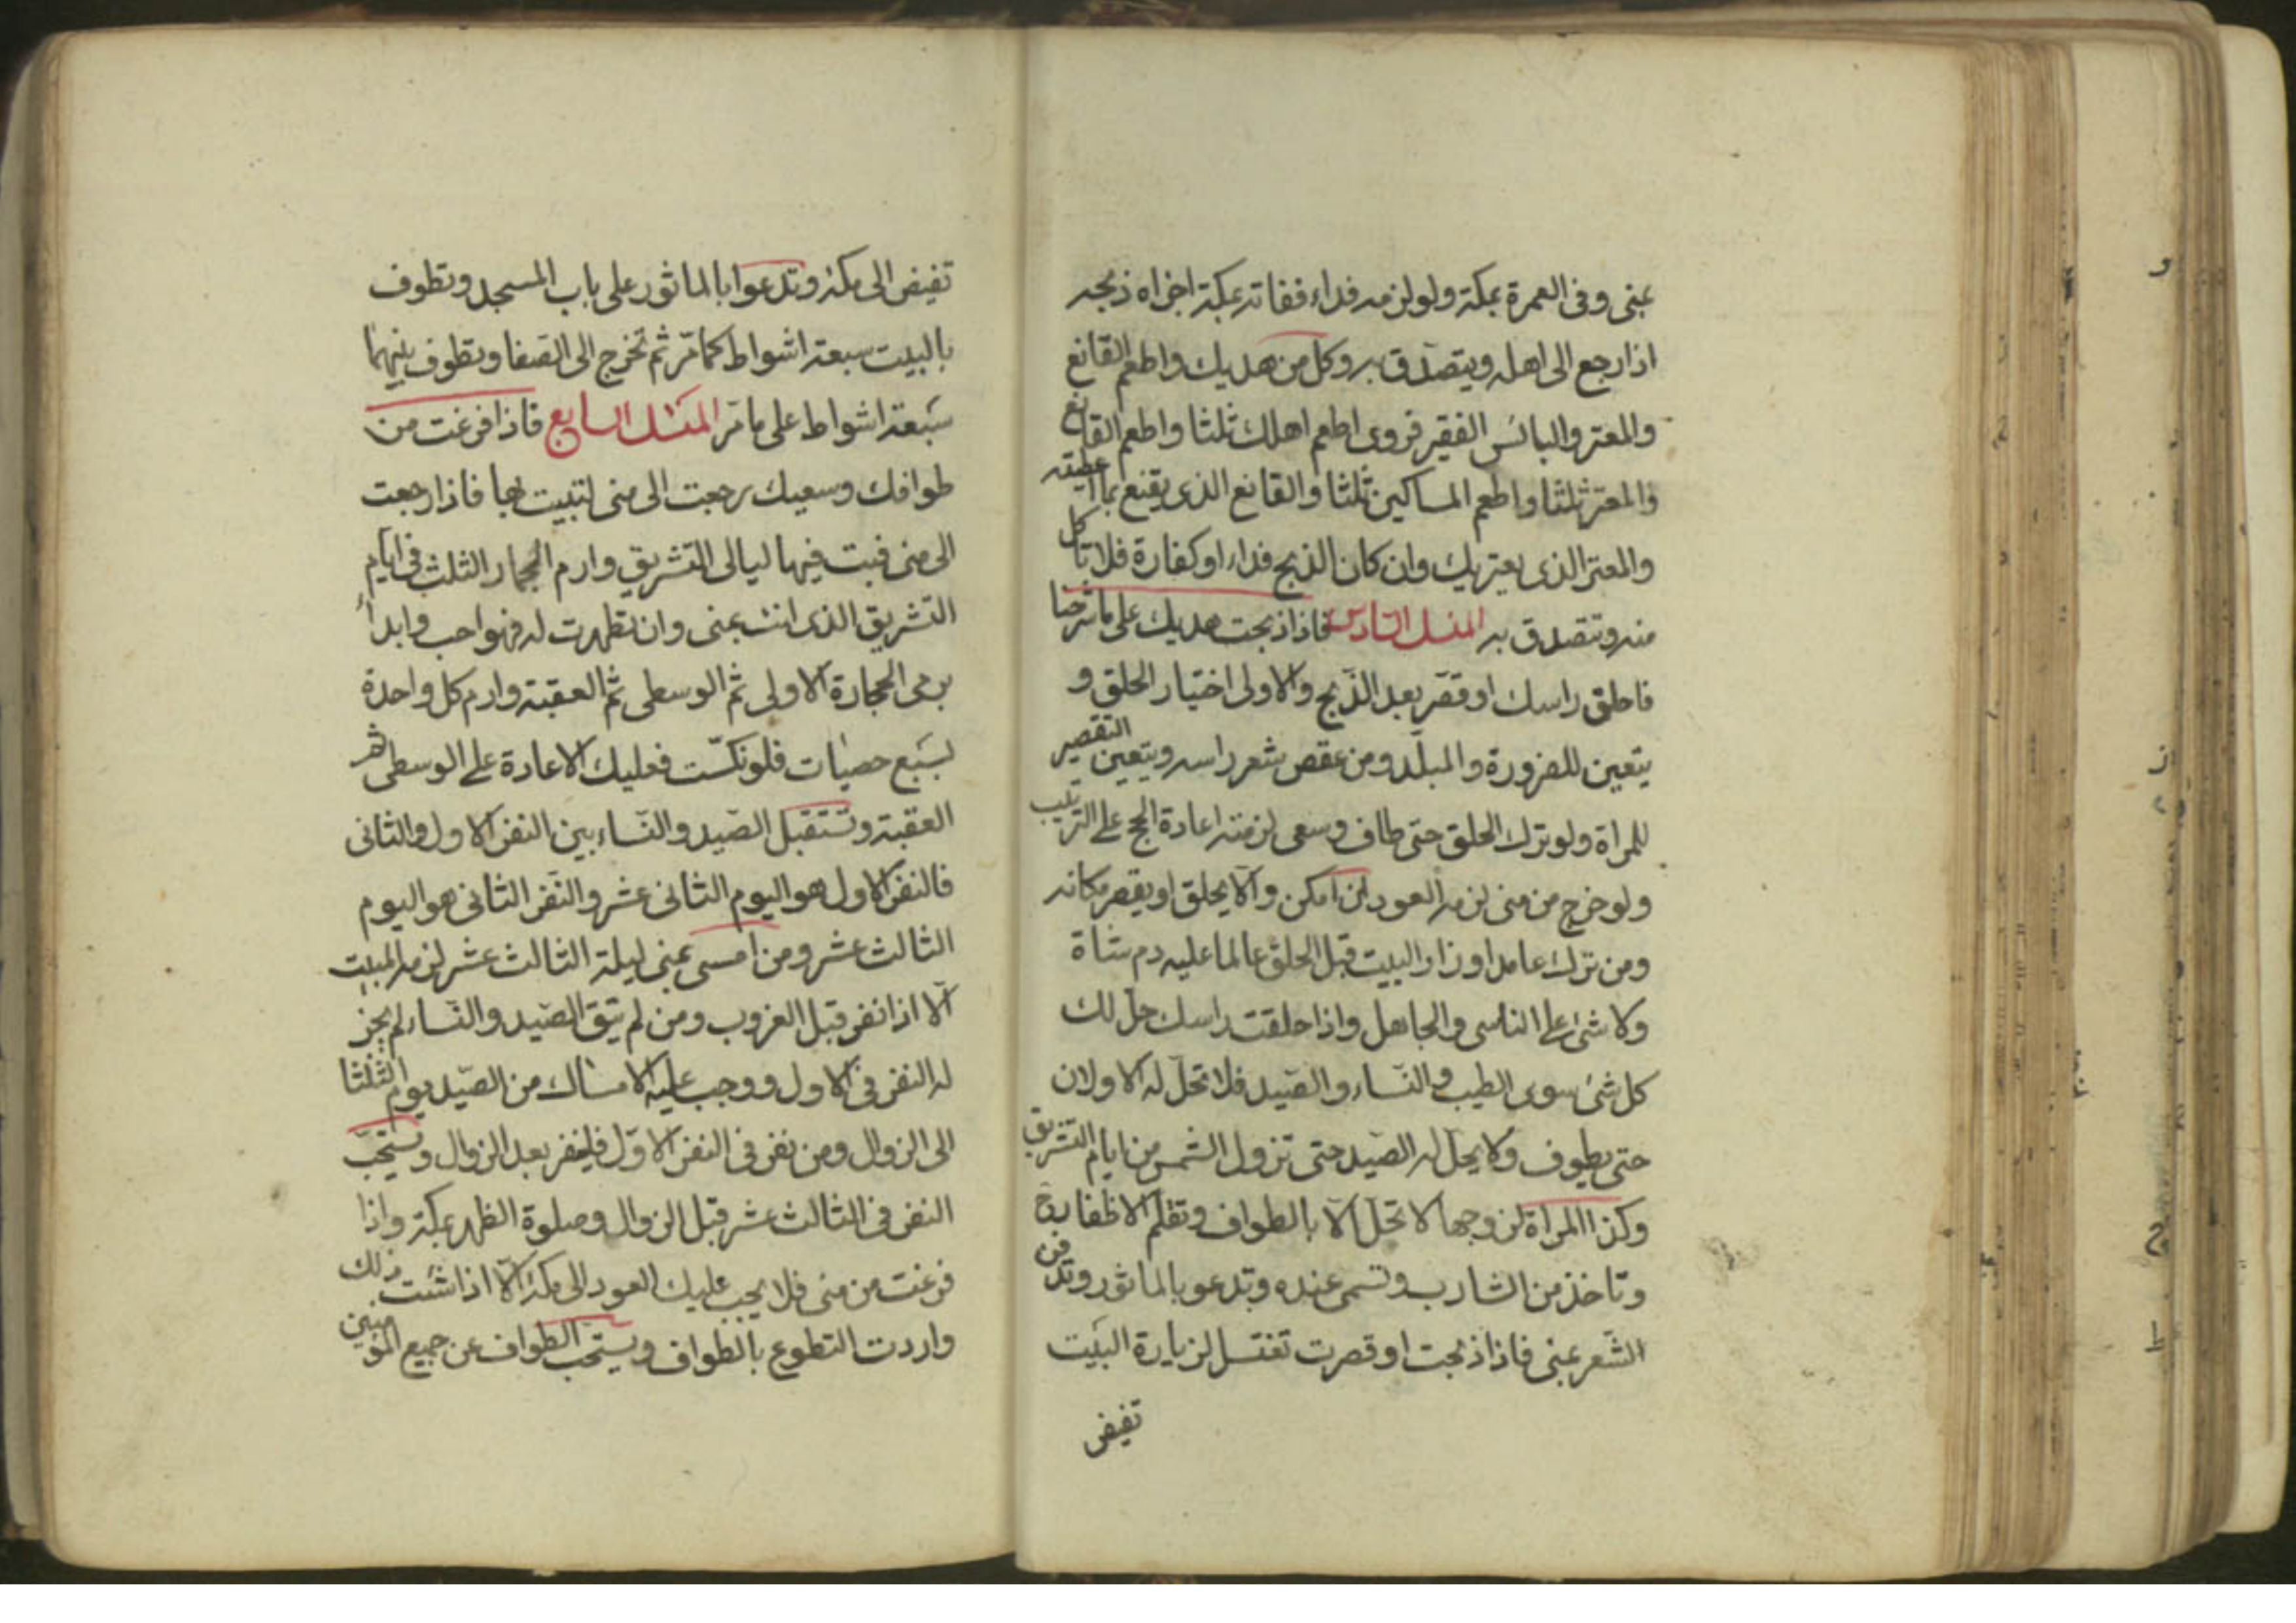 بمنى وفى العمرة بمكة ولو لزمه فداء ففاته بمكة اجزاه ذبحه
اذا رجع الى اهله ويتصدق به وكل من هديك واطعم القانع
والمعتر والبائس الفقير فروى اطعم اهلك ثلثا واطعم القانع
والمعتر ثلثا واطعم المساكين ثلثا والقانع الذى يقنع بما اعطيته
والمعتر الذى يعتريك وان كان الذبح فداء او كفارة فلا تاكل
منه وتتصدق به المنسك السادس فاذا ذبحت هديك على ما شرحنا
فاحلق راسك او قصر بعد الذبح والاولى اختيار الحلق و
يتعين للصرورة والملبد ومن عقص شعر راسه ويتعين التقصير
للمراة ولو ترك الحلق حتى طاف وسعى لزمته اعادة الحج على الترتيب
ولو خرج من منى لزمه العود ان امكن والا يحلق او يقصر مكانه
ومن ترك عامدا او زار البيت قبل الحلق عالما عليه دم شاة
ولا شئ على الناسى والجاهل واذا حلقت راسك حل لك
كل شئ سوى الطيب والنساء والصيد فلا تحل له الاولان
حتى يطوف ولا يحل له الصيد حتى تزول الشمس من ايام التشريق
وكذا المراة لزوجها لا تحل الا بالطواف وتقلم الاظفار
وتاخذ من الشارب وتسمى عنده وتدعو بالماثور وتدفن
الشعر بمنى فاذا ذبحت او قصرت تغتسل لزيارة البيت
تفيض
تفيض الى مكة وتدعوا بالماثور على باب المسجد وتطوف
بالبيت سبعة اشواط كما مر ثم تخرج الى الصفا وتطوف بينهما
سبعة اشواط على ما مر المنسك السابع فاذا فرغت من
طوافك وسعيك رجعت الى منى لتبيت بها فاذا رجعت
الى منى فبت فيها ليالى التشريق وارم الجمار الثلث فى ايام
التشريق الذى انت بمنى وان تطهرت له فهو احب وابدأ
برمى الحجارة الاولى ثم الوسطى ثم العقبة وارم كل واحدة
بسبع حصيات فلو نكست فعليك الاعادة على الوسطى ثم
العقبة وتستقبل الصيد والنساء بين النفر الاول والثانى
فالنفر الاول هو اليوم الثانى عشر والنفر الثانى هو اليوم
الثالث عشر ومن امسى بمنى ليلة الثالث عشر لزمه المبيت
الا اذا نفر قبل الغروب ومن لم يتق الصيد والنساء لم يجز
له النفر فى الاول ووجب عليه الامساك من الصيد يوم الثلثا
الى الزوال ومن نفر فى النفر الاول فلينفر بعد الزوال ويستحب
النفر فى الثالث عشر قبل الزوال وصلوة الظهر بمكة واذا
فرغت من منى فلا يجب عليك العود الى مكة الا اذا شئت ذلك
واردت التطوع بالطواف ويستحب الطواف عن جميع المؤمنين